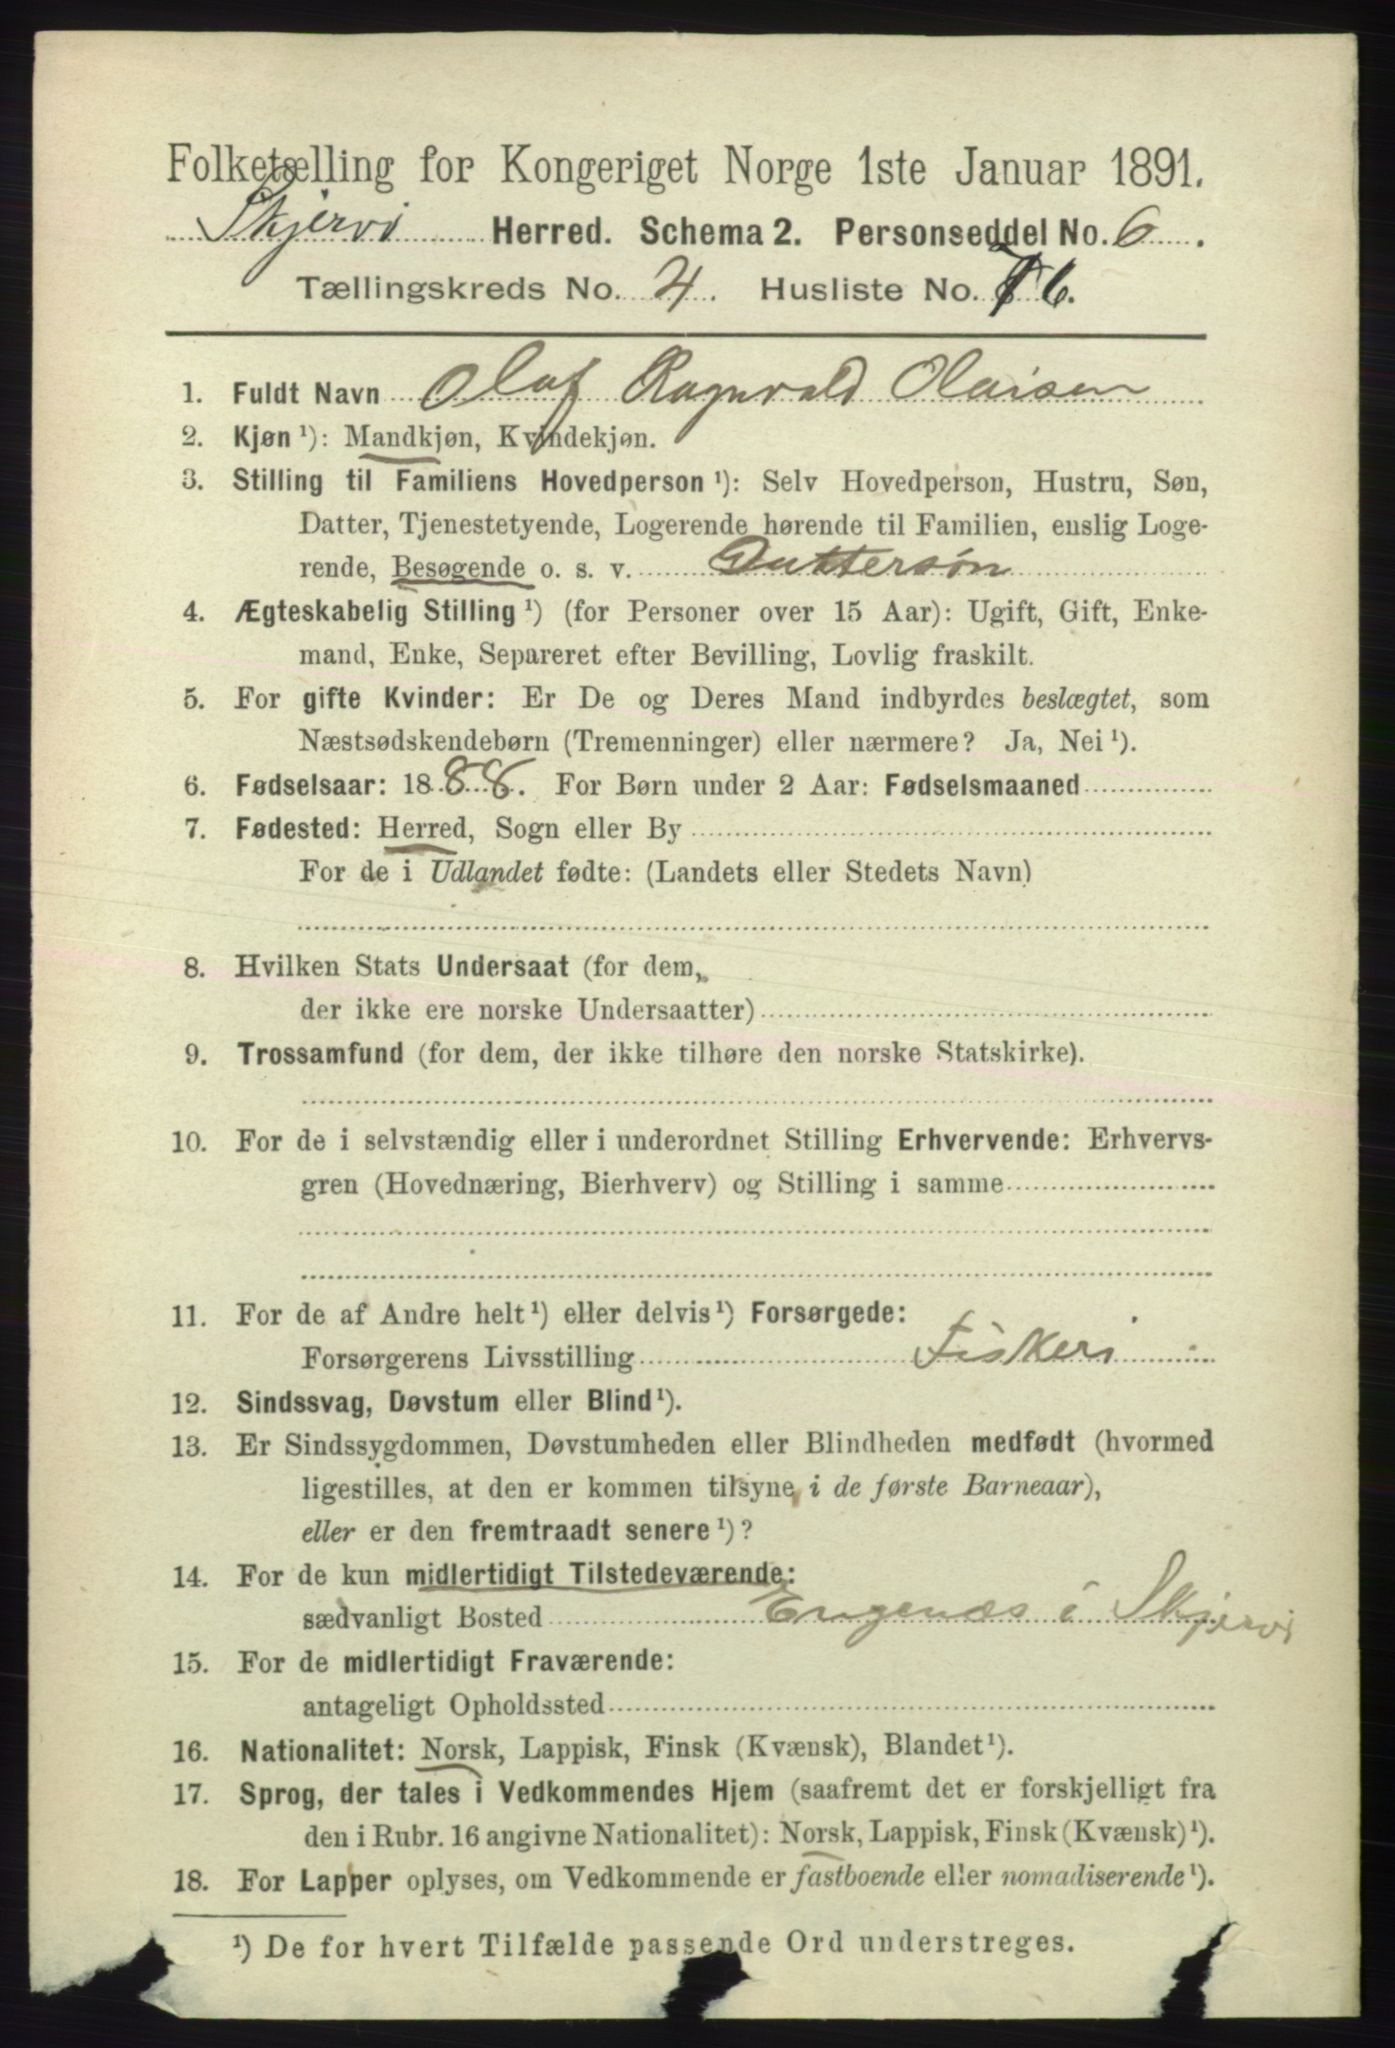 Folketælling for Kongeriget Norge 1ste Januar 1891.
Skjervø Herred. Schema 2. Personseddel No. 6.
Tællingskreds No. 4. Husliste No. 6.
1. Fuldt Navn Olaf Ragnvald Olaisen
2. Kjøn ¹): Mandkjøn, Kvindekjøn.
3. Stilling til Familiens Hovedperson ¹): Selv Hovedperson, Hustru, Søn,
Datter, Tjenestetyende, Logerende hørende til Familien, enslig Loge-
rende, Besøgende o. s. v. Dattersøn
4. Ægteskabelig Stilling ¹) (for Personer over 15 Aar): Ugift, Gift, Enke-
mand, Enke, Separeret efter Bevilling, Lovlig fraskilt.
5. For gifte Kvinder: Er De og Deres Mand indbyrdes beslægtet, som
Næstsødskendebørn (Tremenninger) eller nærmere? Ja, Nei ¹).
6. Fødselsaar: 1888. For Børn under 2 Aar: Fødselsmaaned
7. Fødested: Herred, Sogn eller By
For de i Udlandet fødte: (Landets eller Stedets Navn)
8. Hvilken Stats Undersaat (for dem,
der ikke ere norske Undersaatter)
9. Trossamfund (for dem, der ikke tilhøre den norske Statskirke).
10. For de i selvstændig eller i underordnet Stilling Erhvervende: Erhvervs-
gren (Hovednæring, Bierhverv) og Stilling i samme
11. For de af Andre helt ¹) eller delvis ¹) Forsørgede:
Forsørgerens Livsstilling Fiskeri
12. Sindssvag, Døvstum eller Blind ¹).
13. Er Sindssygdommen, Døvstumheden eller Blindheden medfødt (hvormed
ligestilles, at den er kommen tilsyne i de første Barneaar),
eller er den fremtraadt senere ¹)?
14. For de kun midlertidigt Tilstedeværende:
sædvanligt Bosted Engenæs i Skjervø
15. For de midlertidigt Fraværende:
antageligt Opholdssted
16. Nationalitet: Norsk, Lappisk, Finsk (Kvænsk), Blandet ¹).
17. Sprog, der tales i Vedkommendes Hjem (saafremt det er forskjelligt fra
den i Rubr. 16 angivne Nationalitet): Norsk, Lappisk, Finsk (Kvænsk) ¹).
18. For Lapper oplyses, om Vedkommende er fastboende eller nomadiserende ¹).
¹) De for hvert Tilfælde passende Ord understreges.